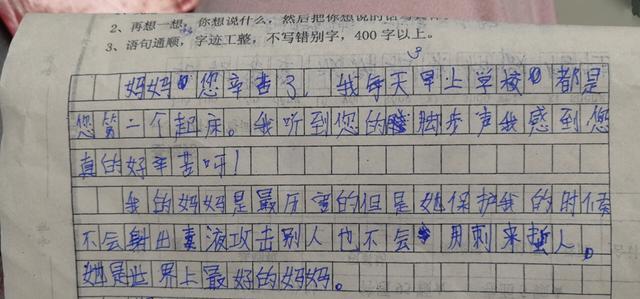 2、再想一想，你想说什么，然后把你想说的话写
3、语句通顺，字迹工整，不写错别字，400字以上。
妈妈您辛苦了，我每天早上学校都是
您第一个起床。我听到您的脚步声我感到您
真的好辛苦呀！
我的妈妈是最厉害的但是她保护我的时候
不会射出毒液攻击别人也不会用刺来蜇人。
她是世界上最好的妈妈。